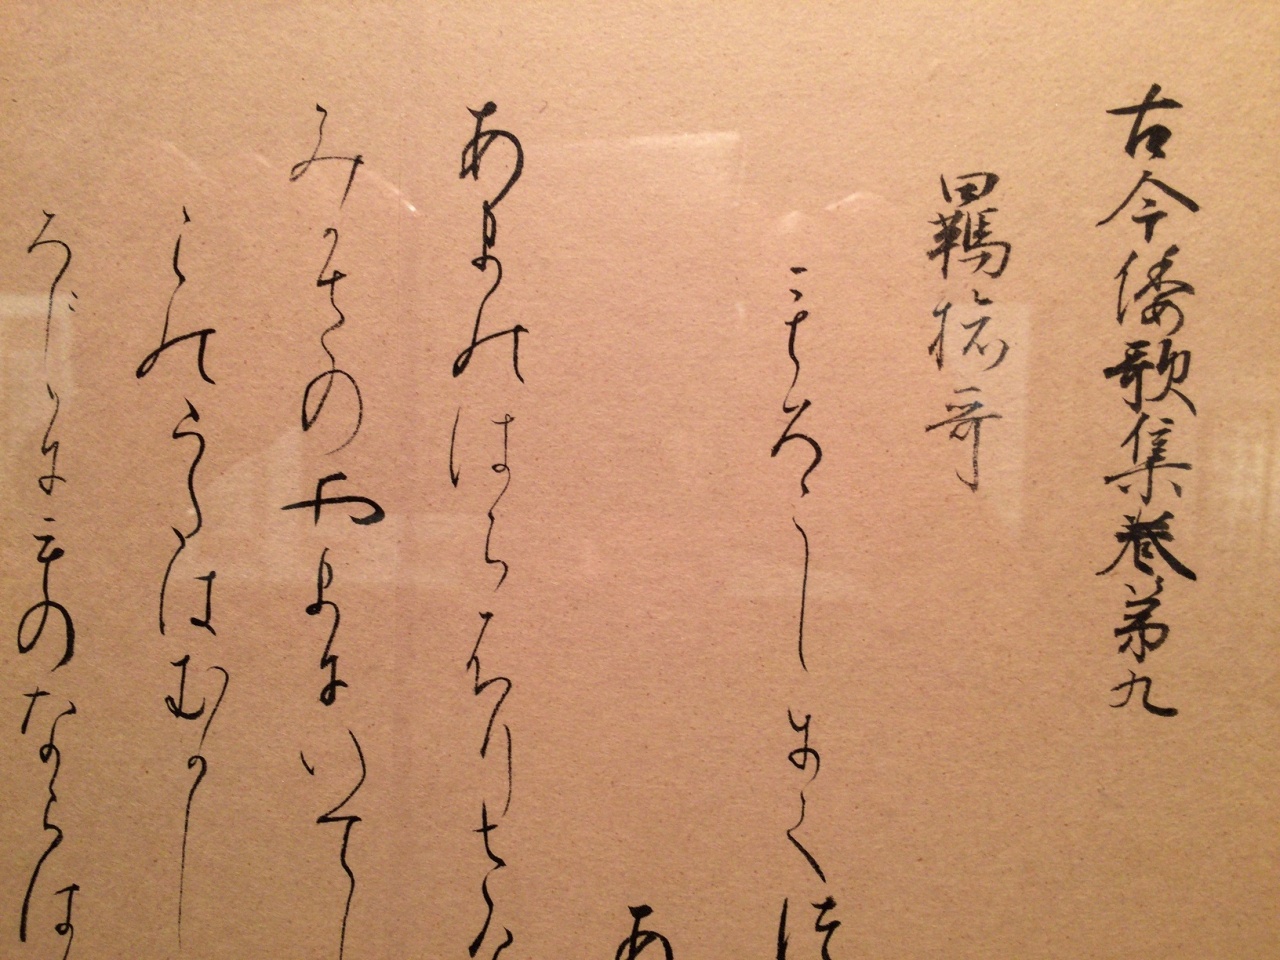 古今倭歌集巻第九
羈旅哥
もろこしにてつ
あ
あまのはらふりさ
みかさのやまにいてし
このうたはむかし
ろこしにものならは